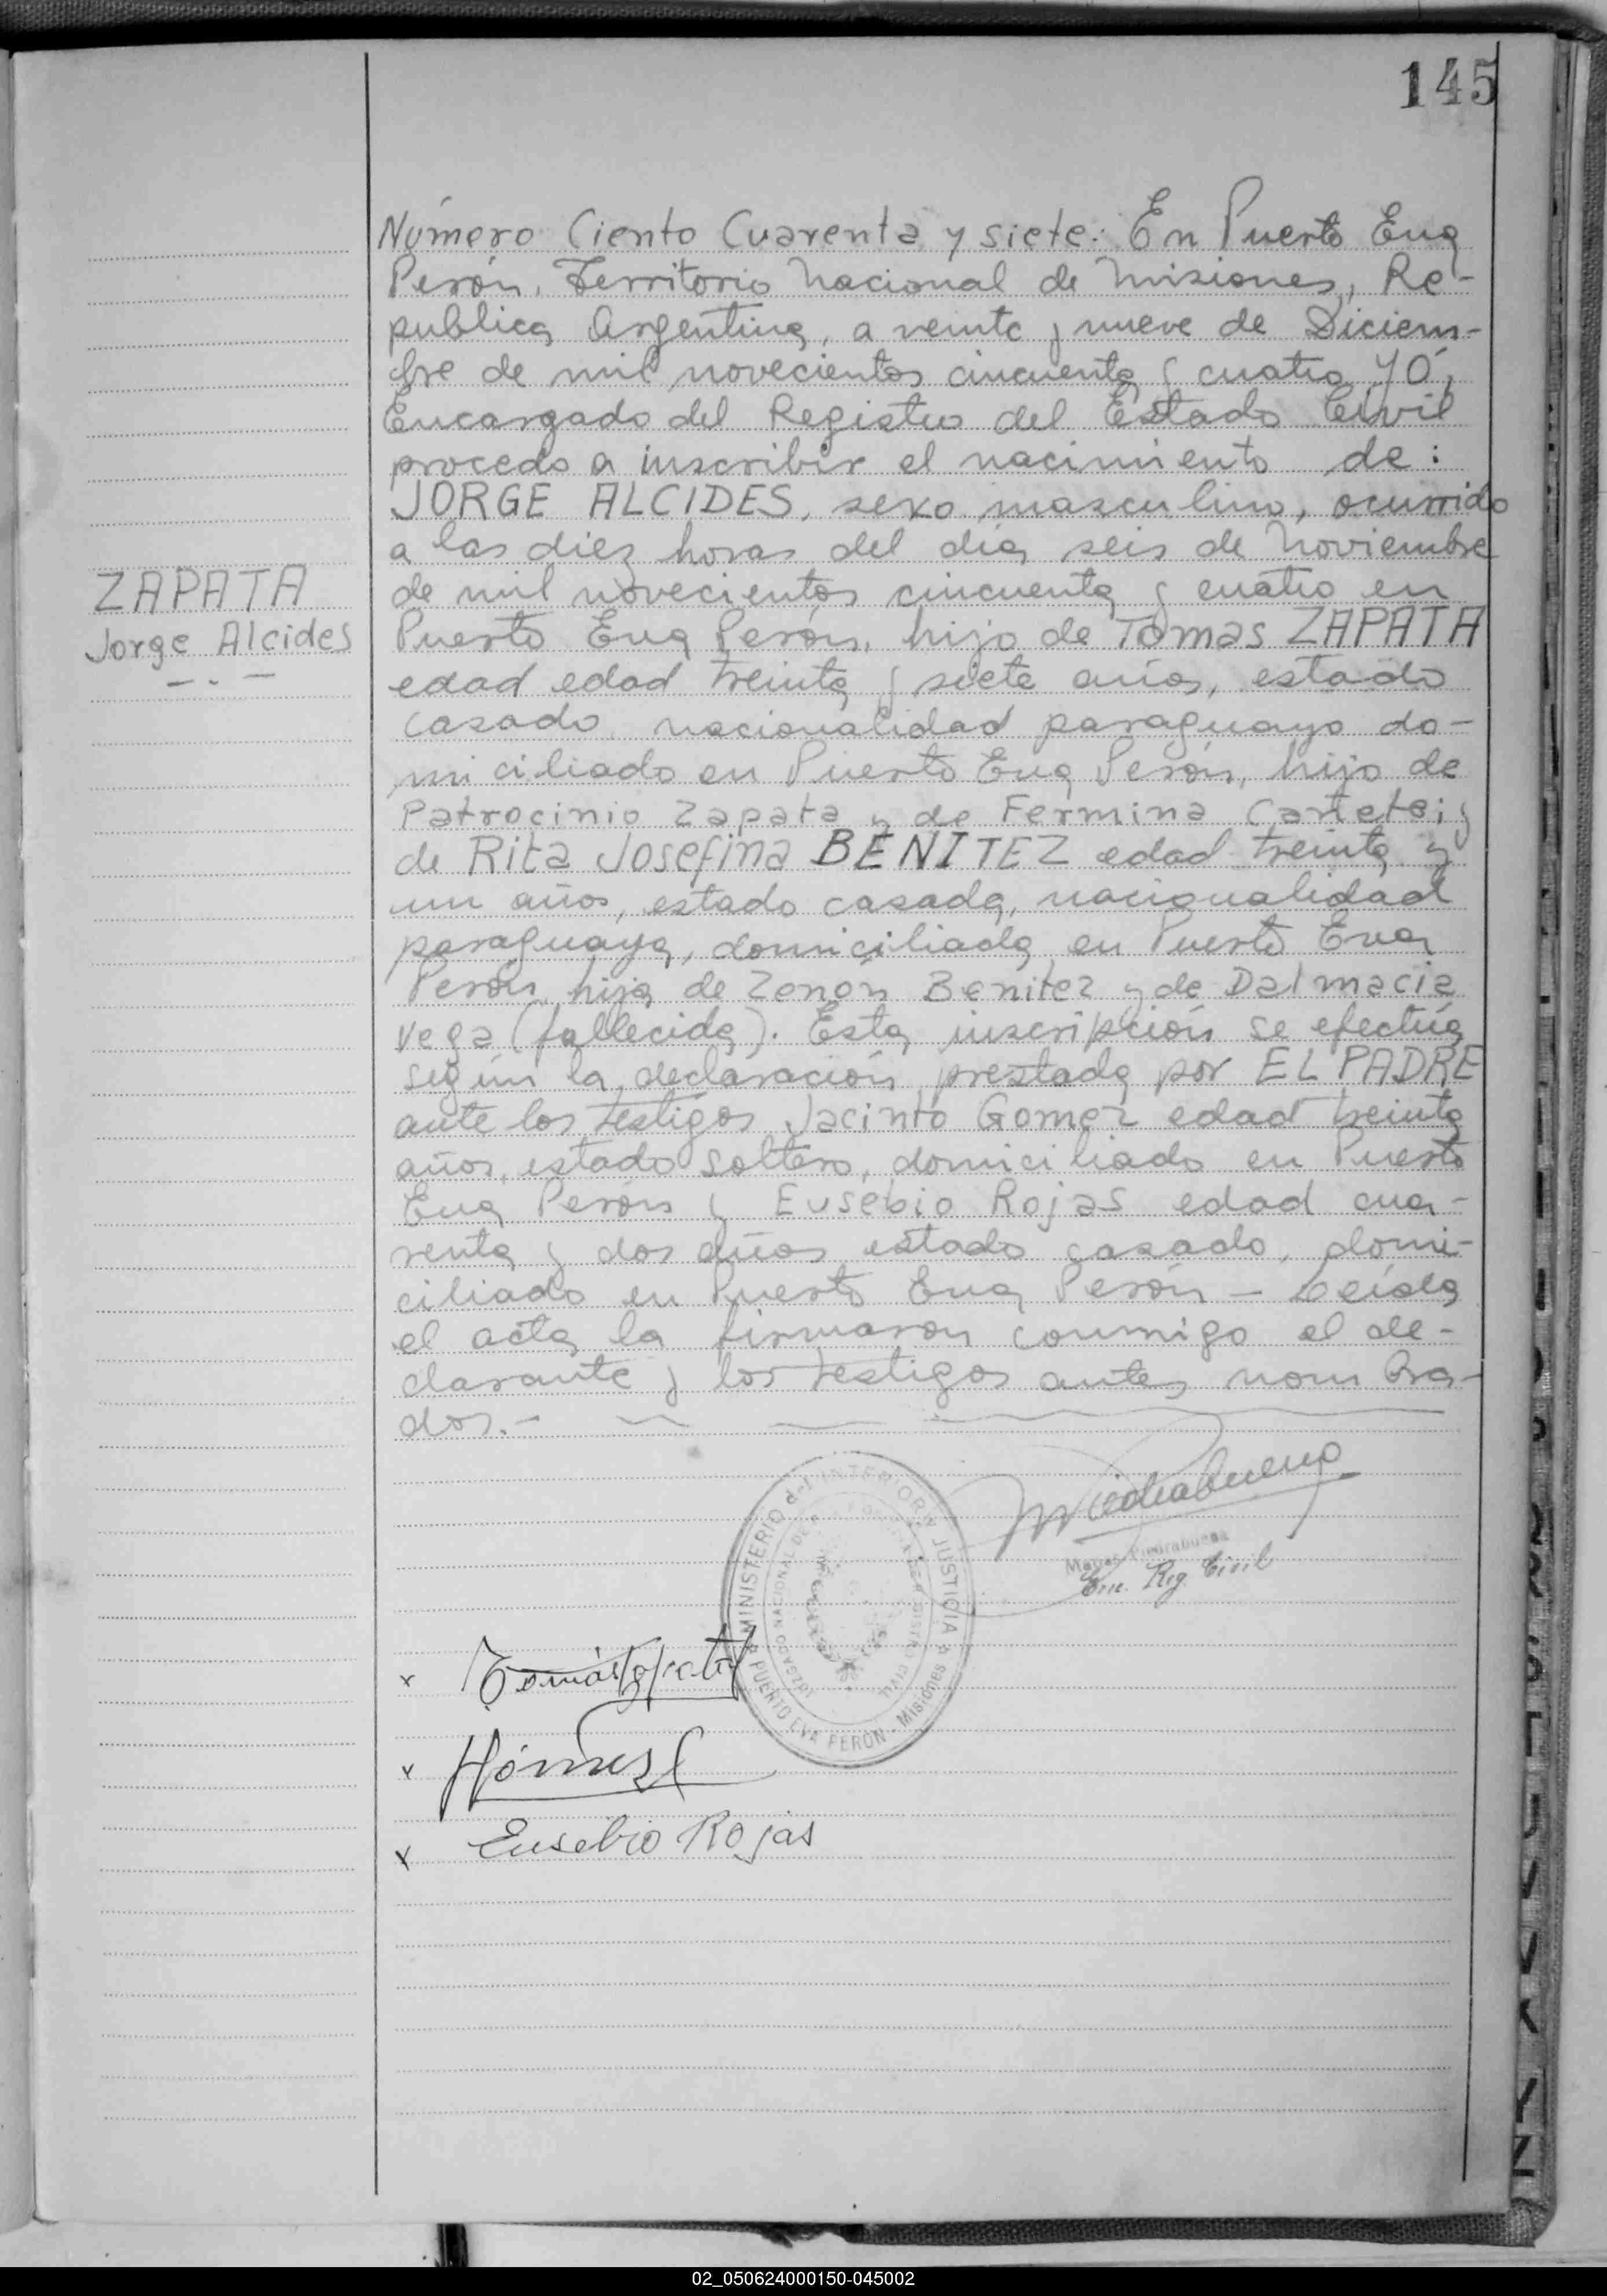 145
Número Ciento Cuarenta y siete: En Puerto Eva
Perón, Territorio Nacional de Misiones, Re-
publica Argentina, a veinte y nueve de Diciem-
bre de mil novecientos cincuenta y cuatro YO,
Encargado del Registro del Estado Civil
procedo a inscribir el nacimiento de:
JORGE ALCIDES, sexo masculino, ocurrido
a las diez horas del día seis de Noviembre
ZAPATA
Jorge Alcides
de mil novecientos cincuenta y cuatro en
Puerto Eva Perón, hijo de Tomas ZAPATA
edad edad treinta y siete años, estado
casado, nacionalidad paraguayo do-
miciliado en Puerto Eva Perón, hijo de
Patrocinio Zapata y de Fermina y
de Rita Josefina BENITEZ edad treinta y
un años, estado casada, nacionalidad
paraguaya, domiciliada en Puerto Eva
Perón, hija de Zenón Benitez y de Dalmacia
Vega (fallecida). Esta inscripción se efectúa
según la declaración prestada por EL PADRE
ante los testigos Jacinto Gomez edad treinta
años, estado soltero, domiciliado en Puerto
Eva Perón y Eusebio Rojas edad cua-
renta y dos años estado casado, domi-
ciliado en Puerto Eva Perón - Leída
el acta la firmaron conmigo el de-
clarante y los testigos antes nombra-
dos.-
MINISTERIO del INTERIOR y JUSTICIA
PUERTO EVA PERÓN - Misiones
Enc. Reg. Civil
x Tomás Zapata
x
x Eusebio Rojas
02_050624000150-045002